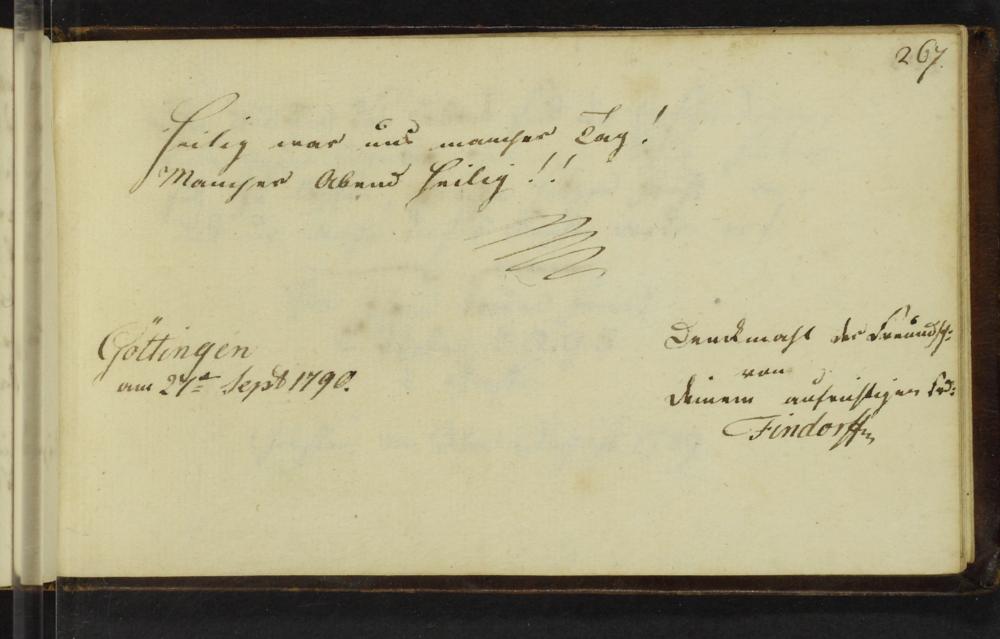 267.
Heilig war uns mancher Tag!
Mancher Abend heilig!!
Göttingen
am 27t Sept 1790.
Denckmahl der Freundsch:
von
Deinem aufrichtigen Frd:
Findorff